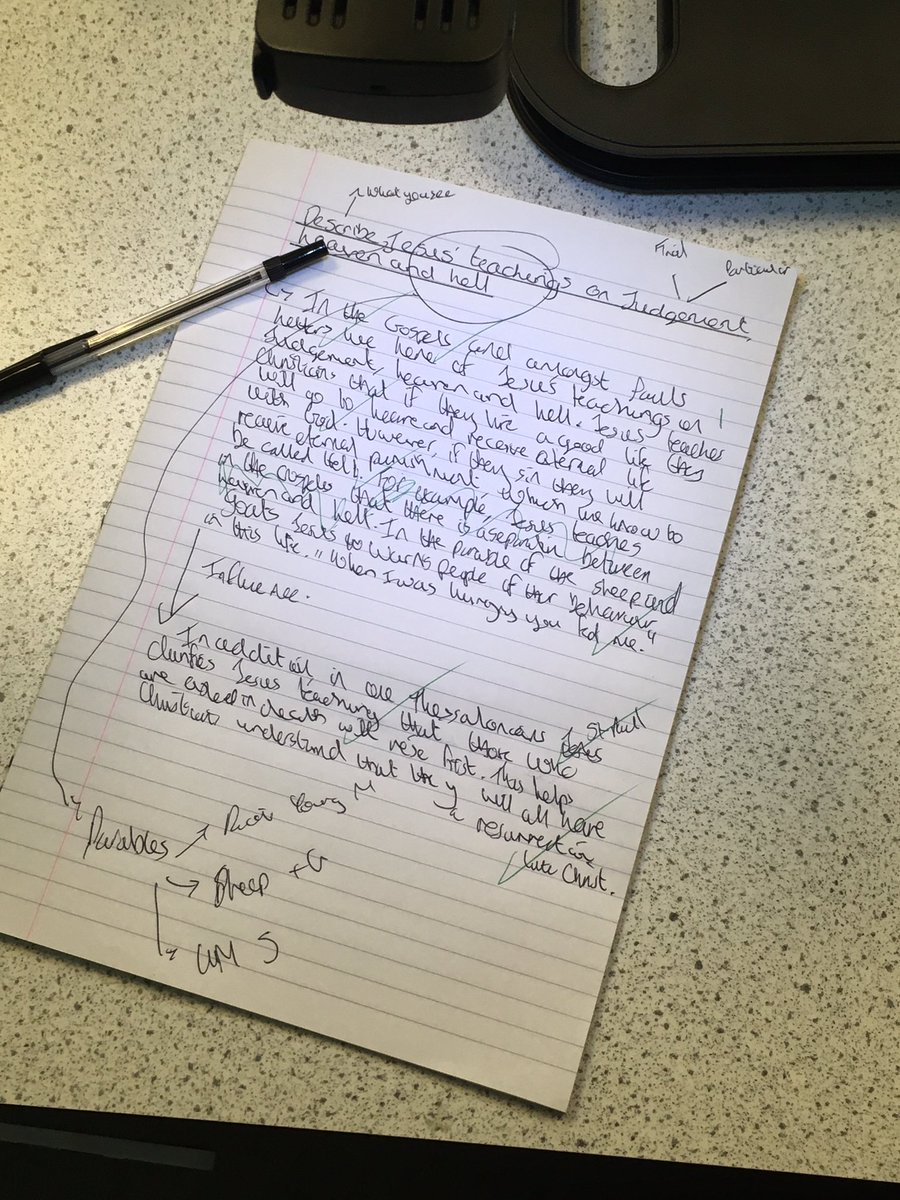 What you see
Final
Particular
Describe Jesus' teachings on Judgement,
heaven and hell
In the Gospels and amongst Pauls
letters we here of Jesus' teachings on
Judgement, heaven and hell. Jesus teaches
Christians that if they live a good life they
will go to heaven and receive eternal life
with God. However, if they sin they will
receive eternal punishment which we know to
be called Hell. For example, Jesus teaches
in the Gospels that there is a separation between
heaven and hell. In the parable of the sheep and
goats Jesus warns people of their behaviour
in this life. "When I was hungry you fed me."
Influence.
In addition, in one Thessalonians St Paul
clarifies Jesus teaching that those who
are asleep in death will rise first. This helps
Christians understand that they will all have
a resurrection
like Christ.
Parables
Young M
Sheep + G
UM S